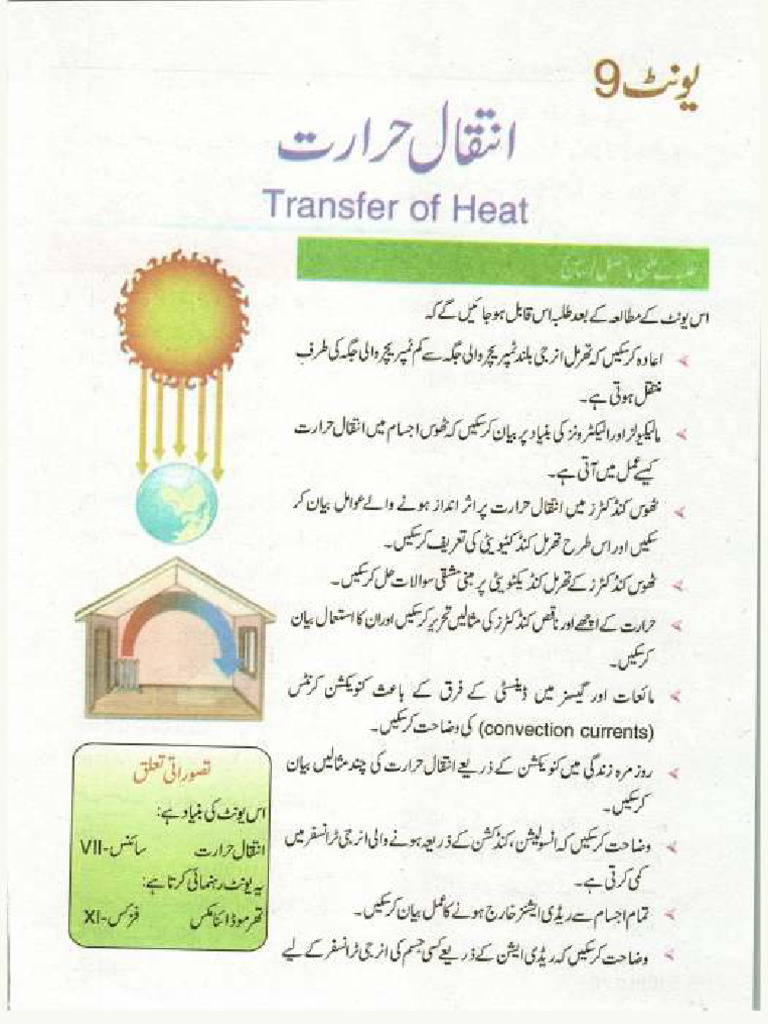 یونٹ 9
انتقال حرارت
Transfer of Heat
طلبہ کے علمی ماحصل / نتائج
اس یونٹ کے مطالعہ کے بعد طلبہ اس قابل ہو جائیں گے کہ
اعادہ کر سکیں کہ تھرمل انرجی بلند ٹمپریچر والی جگہ سے کم ٹمپریچر والی جگہ کی طرف
منتقل ہوتی ہے۔
مالیکیولز اور الیکٹرونز کی بنیاد پر بیان کر سکیں کہ ٹھوس اجسام میں انتقال حرارت
کیسے عمل میں آتی ہے۔
ٹھوس کنڈکٹرز میں انتقال حرارت پر اثر انداز ہونے والے عوامل بیان کر
سکیں اور اس طرح تھرمل کنڈکٹیویٹی کی تعریف کر سکیں۔
ٹھوس کنڈکٹرز کے تھرمل کنڈیکٹیویٹی پر مبنی مشقی سوالات حل کر سکیں۔
حرارت کے اچھے اور ناقص کنڈکٹرز کی مثالیں تحریر کر سکیں اور ان کا استعمال بیان
کر سکیں۔
مائعات اور گیسز میں ڈینسٹی کے فرق کے باعث کنویکشن کرنٹس
(convection currents) کی وضاحت کر سکیں۔
روز مرہ زندگی میں کنویکشن کے ذریعے انتقال حرارت کی چند مثالیں بیان
کر سکیں۔
وضاحت کر سکیں کہ انسولیشن، کنڈکشن کے ذریعہ ہونے والی انرجی ٹرانسفر میں
کمی کرتی ہے۔
تمام اجسام سے ریڈی ایشنز خارج ہونے کا عمل بیان کر سکیں۔
وضاحت کر سکیں کہ ریڈی ایشن کے ذریعے کسی جسم کی انرجی ٹرانسفر کے لیے
تصوراتی تعلق
اس یونٹ کی بنیاد ہے:
انتقال حرارت سائنس-VII
یہ یونٹ رہنمائی کرتا ہے:
تھرموڈائنامکس فزکس-XI